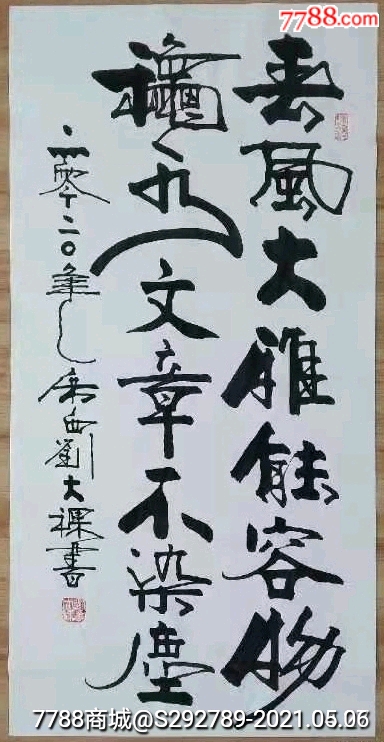 7788.com
春風大雅能容物
龝水文章不染塵
二零二〇年 劉大 書
7788商城@S292789-2021.05